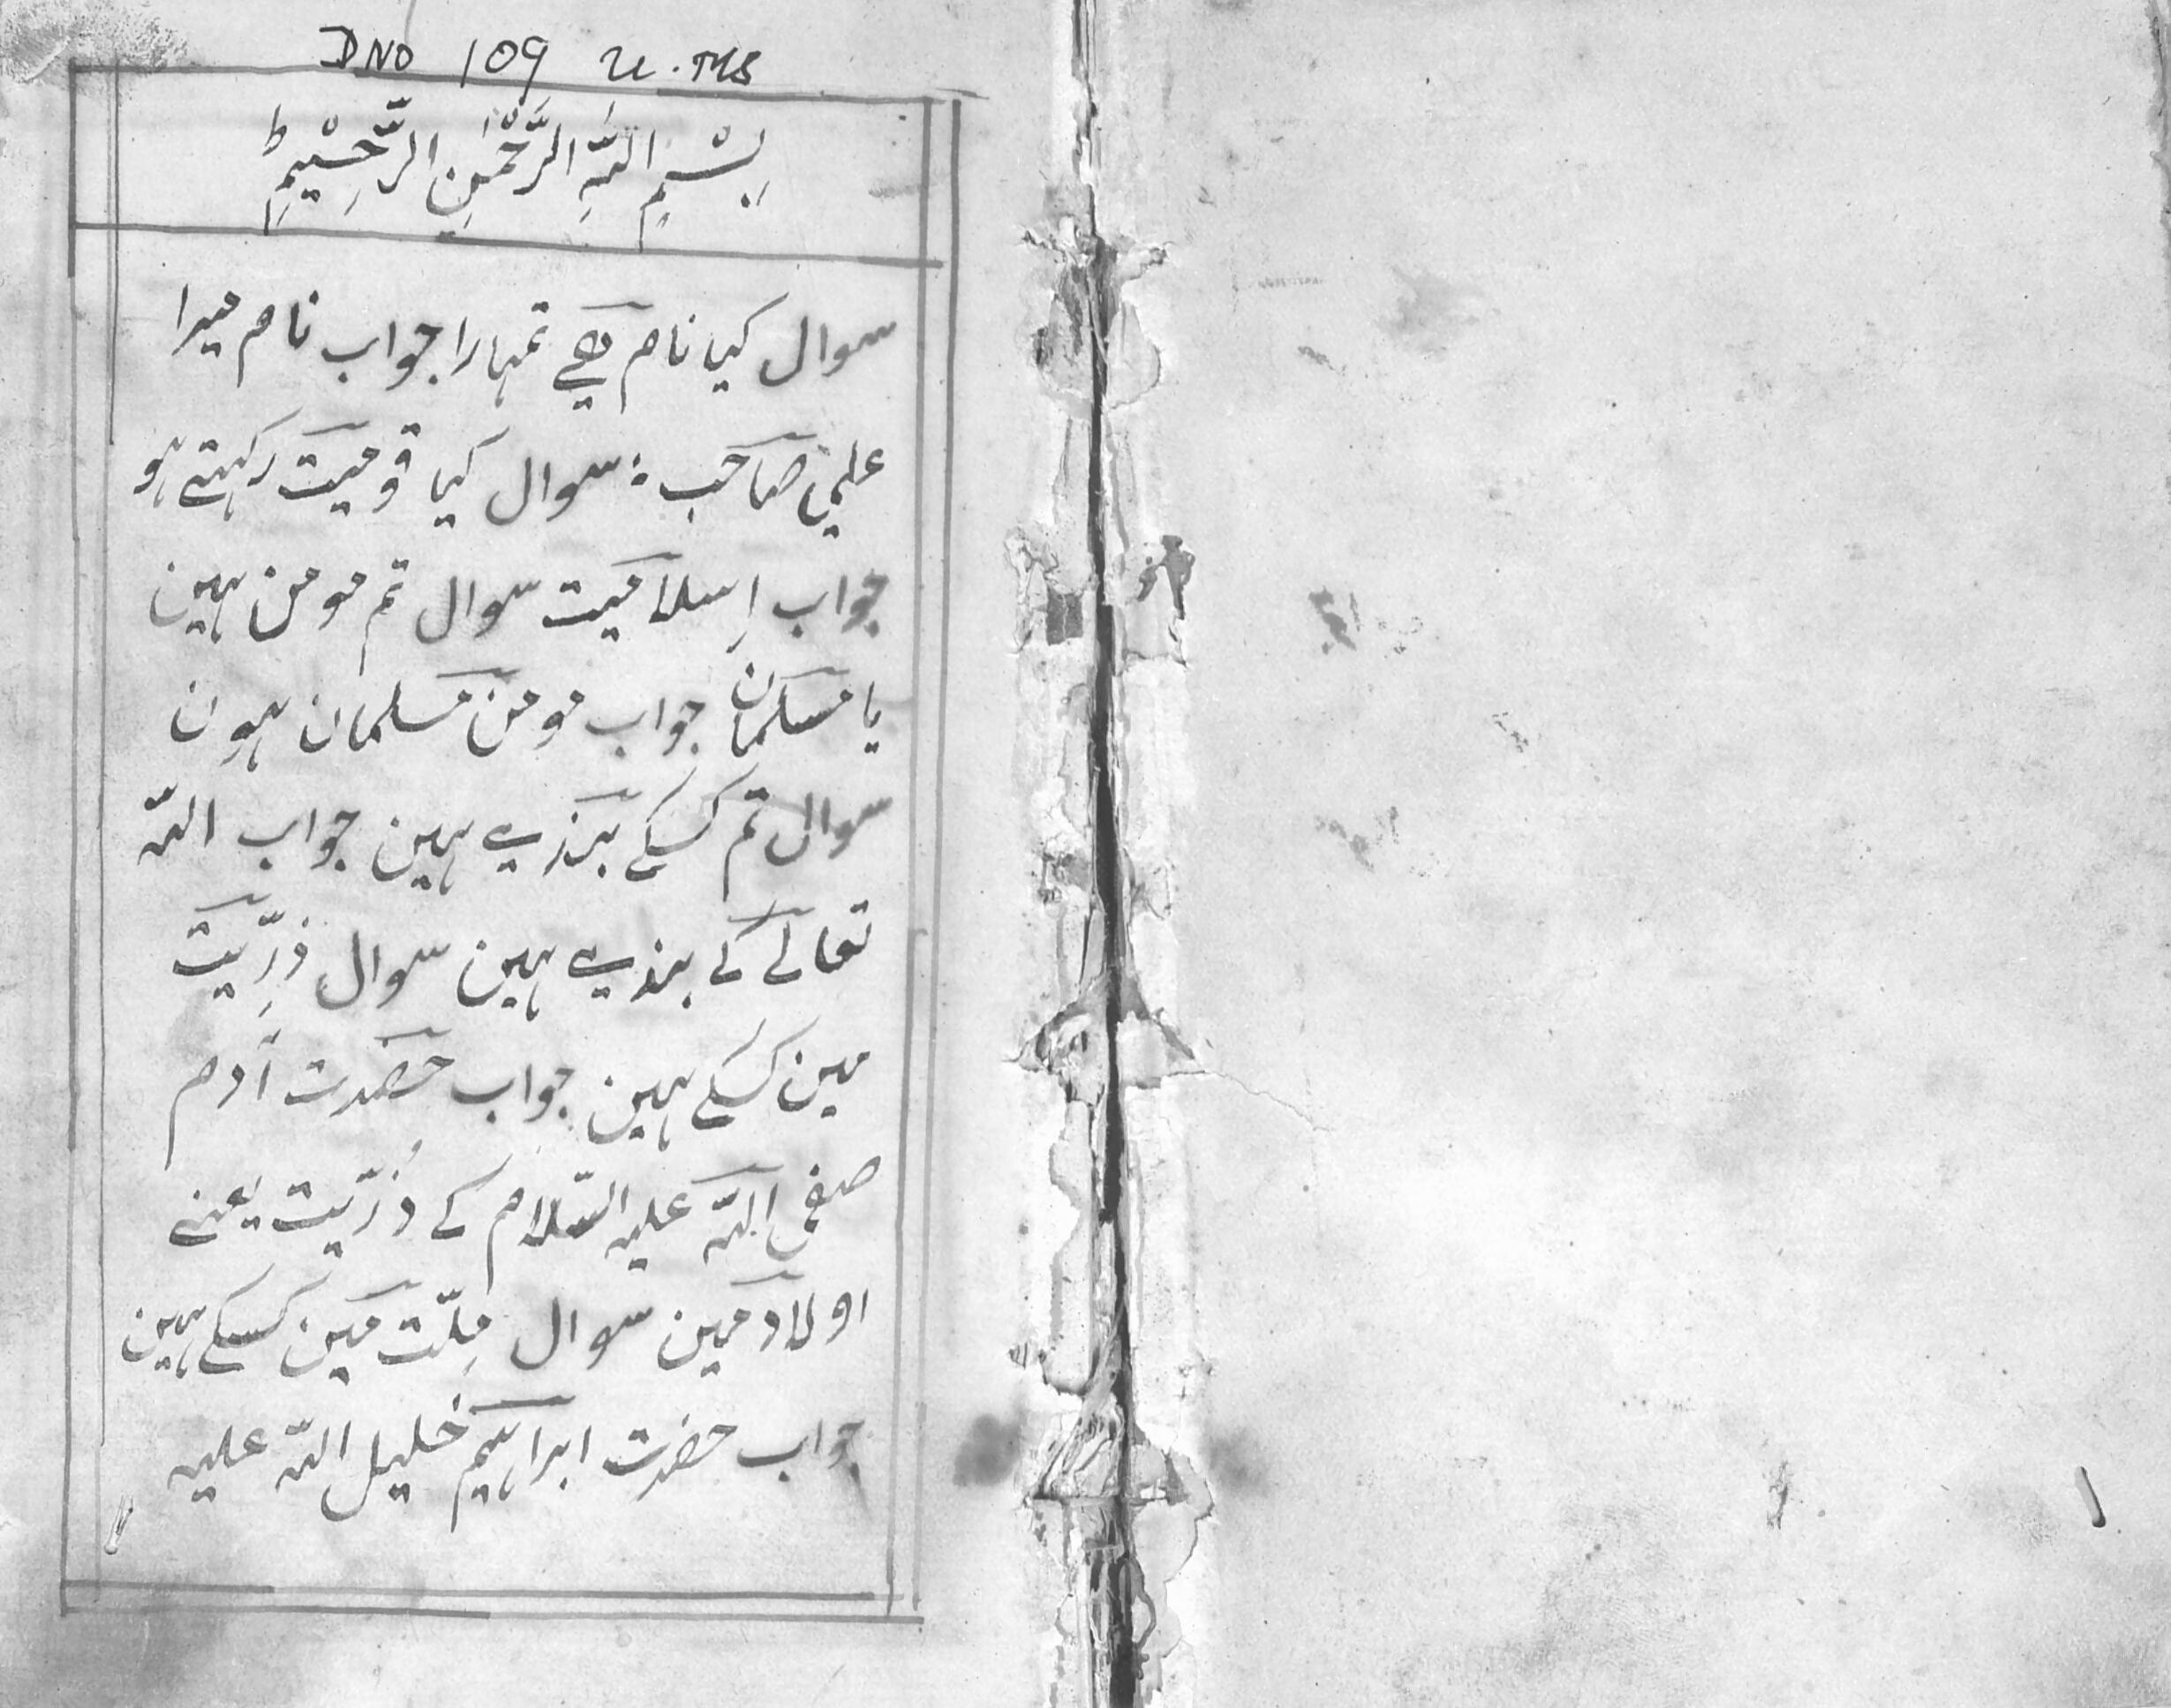 DNO 109 U.MS
بِسْمِ اللّٰہِ الرَّحْمٰنِ الرَّحِیْمِ ط
سوال کیا نام ھے تمہارا جواب نام میرا
علی صاحب ؛ سوال کیا قومیت رکہتے ہو
جواب اِسلامیت سوال تم مومن ہین
یا مسلمان جواب مومن مسلمان ہون
سوال تم کسکے بندے ہین جواب اللّہ
تعالے کے بندے ہین سوال ذرِّیت
مین کسکے ہین جواب حضرت آدم
صفی اللّہ علیہ السّلام کے ذُرّیت یعنے
اولاد مین سوال مِلّت مین کسکے ہین
جواب حضرت ابراہیم خلیل اللّہ علیہ